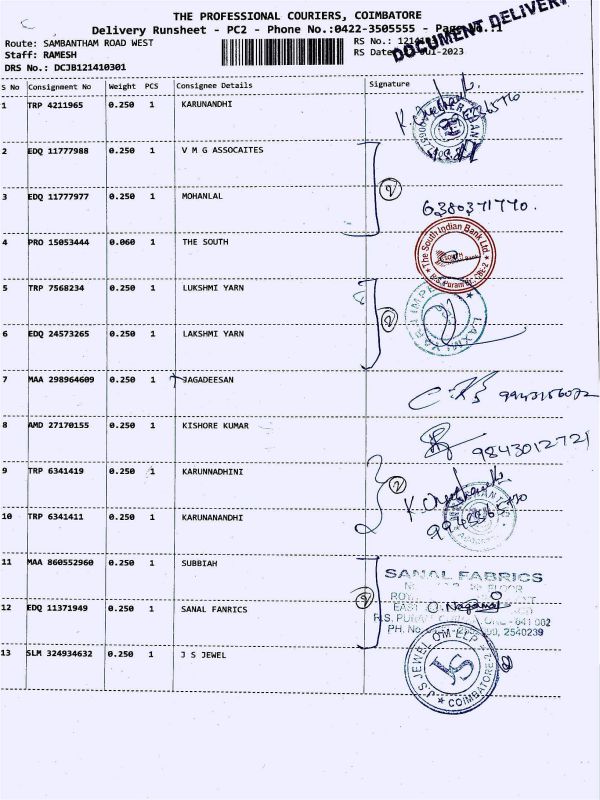 THE PROFESSIONAL COURIERS, COIMBATORE
Delivery Runsheet - PC2 - Phone No.:0422-3505555 -
DOCUMENT DELIVERY
Route: SAMBANTHAM ROAD WEST
RS No.:
Staff: RAMESH
RS Date
DRS No.: DCJB121410301
S No Consignment No Weight PCS Consignee Details Signature
1 TRP 4211965 0.250 1 KARUNANDHI
2 EDQ 11777988 0.250 1 V M G ASSOCAITES
3 EDQ 11777977 0.250 1 MOHANLAL
6380371770.
4 PRO 15053444 0.060 1 THE SOUTH
The South Indian Bank Ltd.
5 TRP 7568234 0.250 1 LUKSHMI YARN
6 EDQ 24573265 0.250 1 LAKSHMI YARN
7 MAA 298964609 0.250 1 JAGADEESAN
8 AMD 27170155 0.250 1 KISHORE KUMAR
9843012721
9 TRP 6341419 0.250 1 KARUNNADHINI
10 TRP 6341411 0.250 1 KARUNANANDHI
11 MAA 860552960 0.250 1 SUBBIAH
SANAL FABRICS
12 EDQ 11371949 0.250 1 SANAL FANRICS
EAST
641 002
PH. No. 2540239
13 SLM 324934632 0.250 1 J S JEWEL
J.S. JEWEL COM LLP
JS
COIMBATORE-2